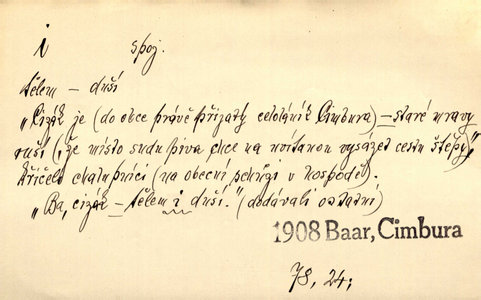 i spoj.
tělem – duší
„Cizák je (do obce právě přijatý celoláník Cimbura) – staré mravy
ruší (, že místo sudu piva chce na uvítanou vysázet cestu štěpy)“
křičeli chalupníci (na obecní schůzi v hospodě).
„Ba, cizák – tělem i duší.“ (dodávali ostatní)
1908 Baar, Cimbura
78, 24;